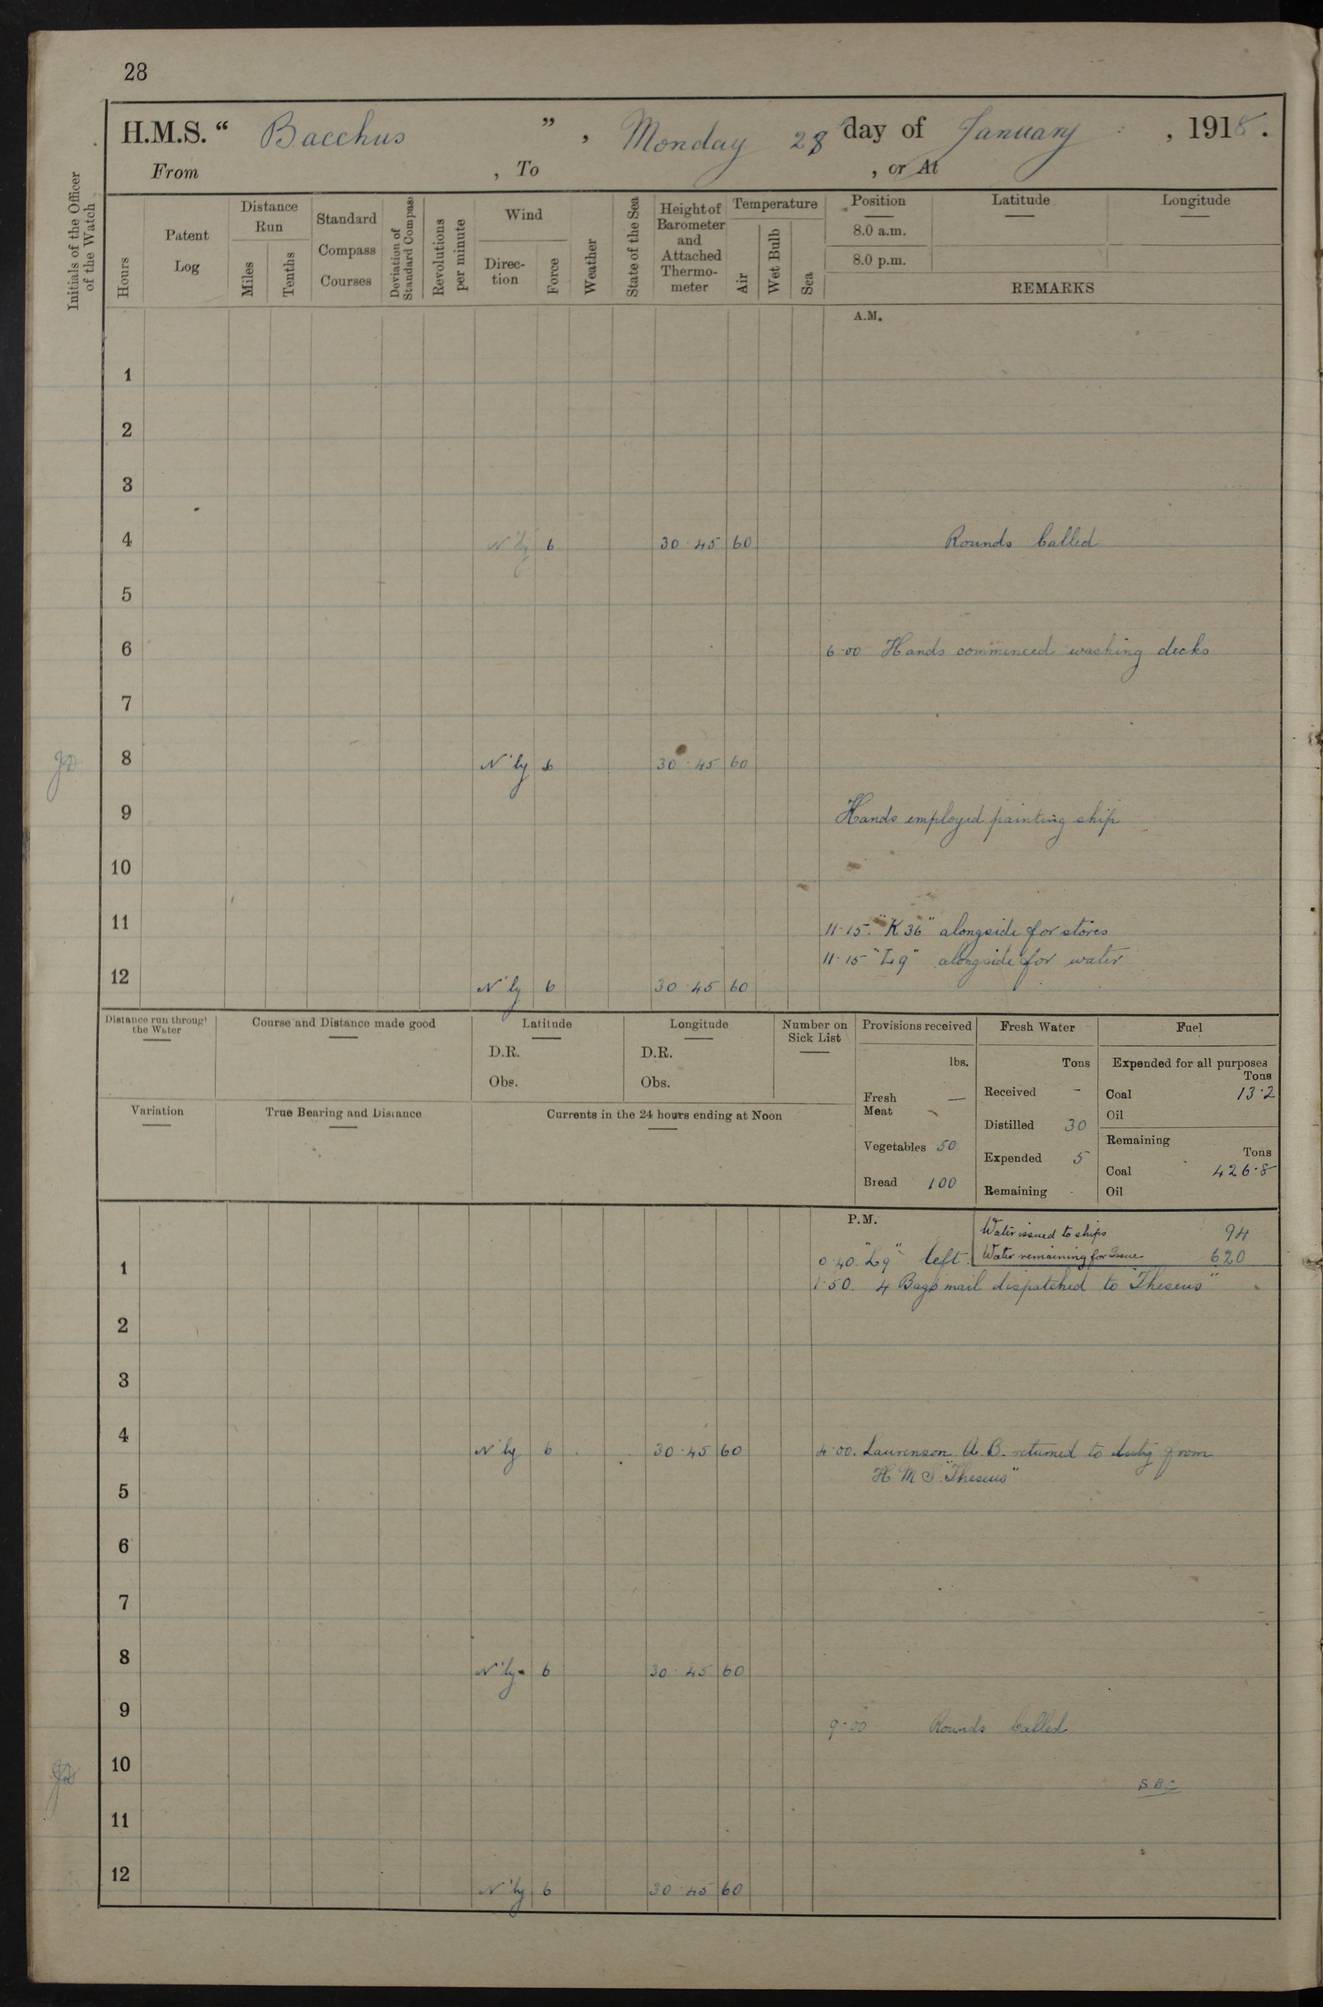 28
H.M.S. “ Bacchus ” , Monday 28 day of January , 1918 .
From , To , or At
Initials of the Officer of the Watch
Hours
Patent Log
Distance Run
Miles
Tenths
Standard Compass Courses
Deviation of Standard Compass
Revolutions per minute
Wind
Direction
Force
Weather
State of the Sea
Height of Barometer and Attached Thermometer
Temperature
Air
Wet Bulb
Sea
Position Latitude Longitude
8.0 a.m.
8.0 p.m.
REMARKS
A.M.
1
2
3
4 N'ly 6 30·45 60 Rounds Called
5
6 6·00 Hands commenced washing decks
7
8 N'ly 6 30·45 60
9 Hands employed painting ship
10
11 11·15. "K 36" alongside for stores
11·15 "L9" alongside for water
12 N'ly 6 30·45 60
Distance run through the Water
Course and Distance made good
Latitude
D.R.
Obs.
Longitude
D.R.
Obs.
Number on Sick List
Variation
True Bearing and Distance
Currents in the 24 hours ending at Noon
Provisions received
lbs.
Fresh Meat —
Vegetables 50
Bread 100
Fresh Water
Tons
Received -
Distilled 30
Expended 5
Remaining -
Fuel
Expended for all purposes
Tons
Coal 13·2
Oil
Remaining
Tons
Coal 426·8
Oil
P.M.
Water issued to ships 94
Water remaining for Issue 620
1 0·40. "L9" left.
1·50. 4 Bags mail dispatched to "Theseus"
2
3
4 N'ly 6 30·45 60 4·00. Laurenson A.B. returned to duty from
H M S "Theseus"
5
6
7
8 N'ly 6 30·45 60
9 9·00 Rounds Called
10
11
12 N'ly 6 30·45 60